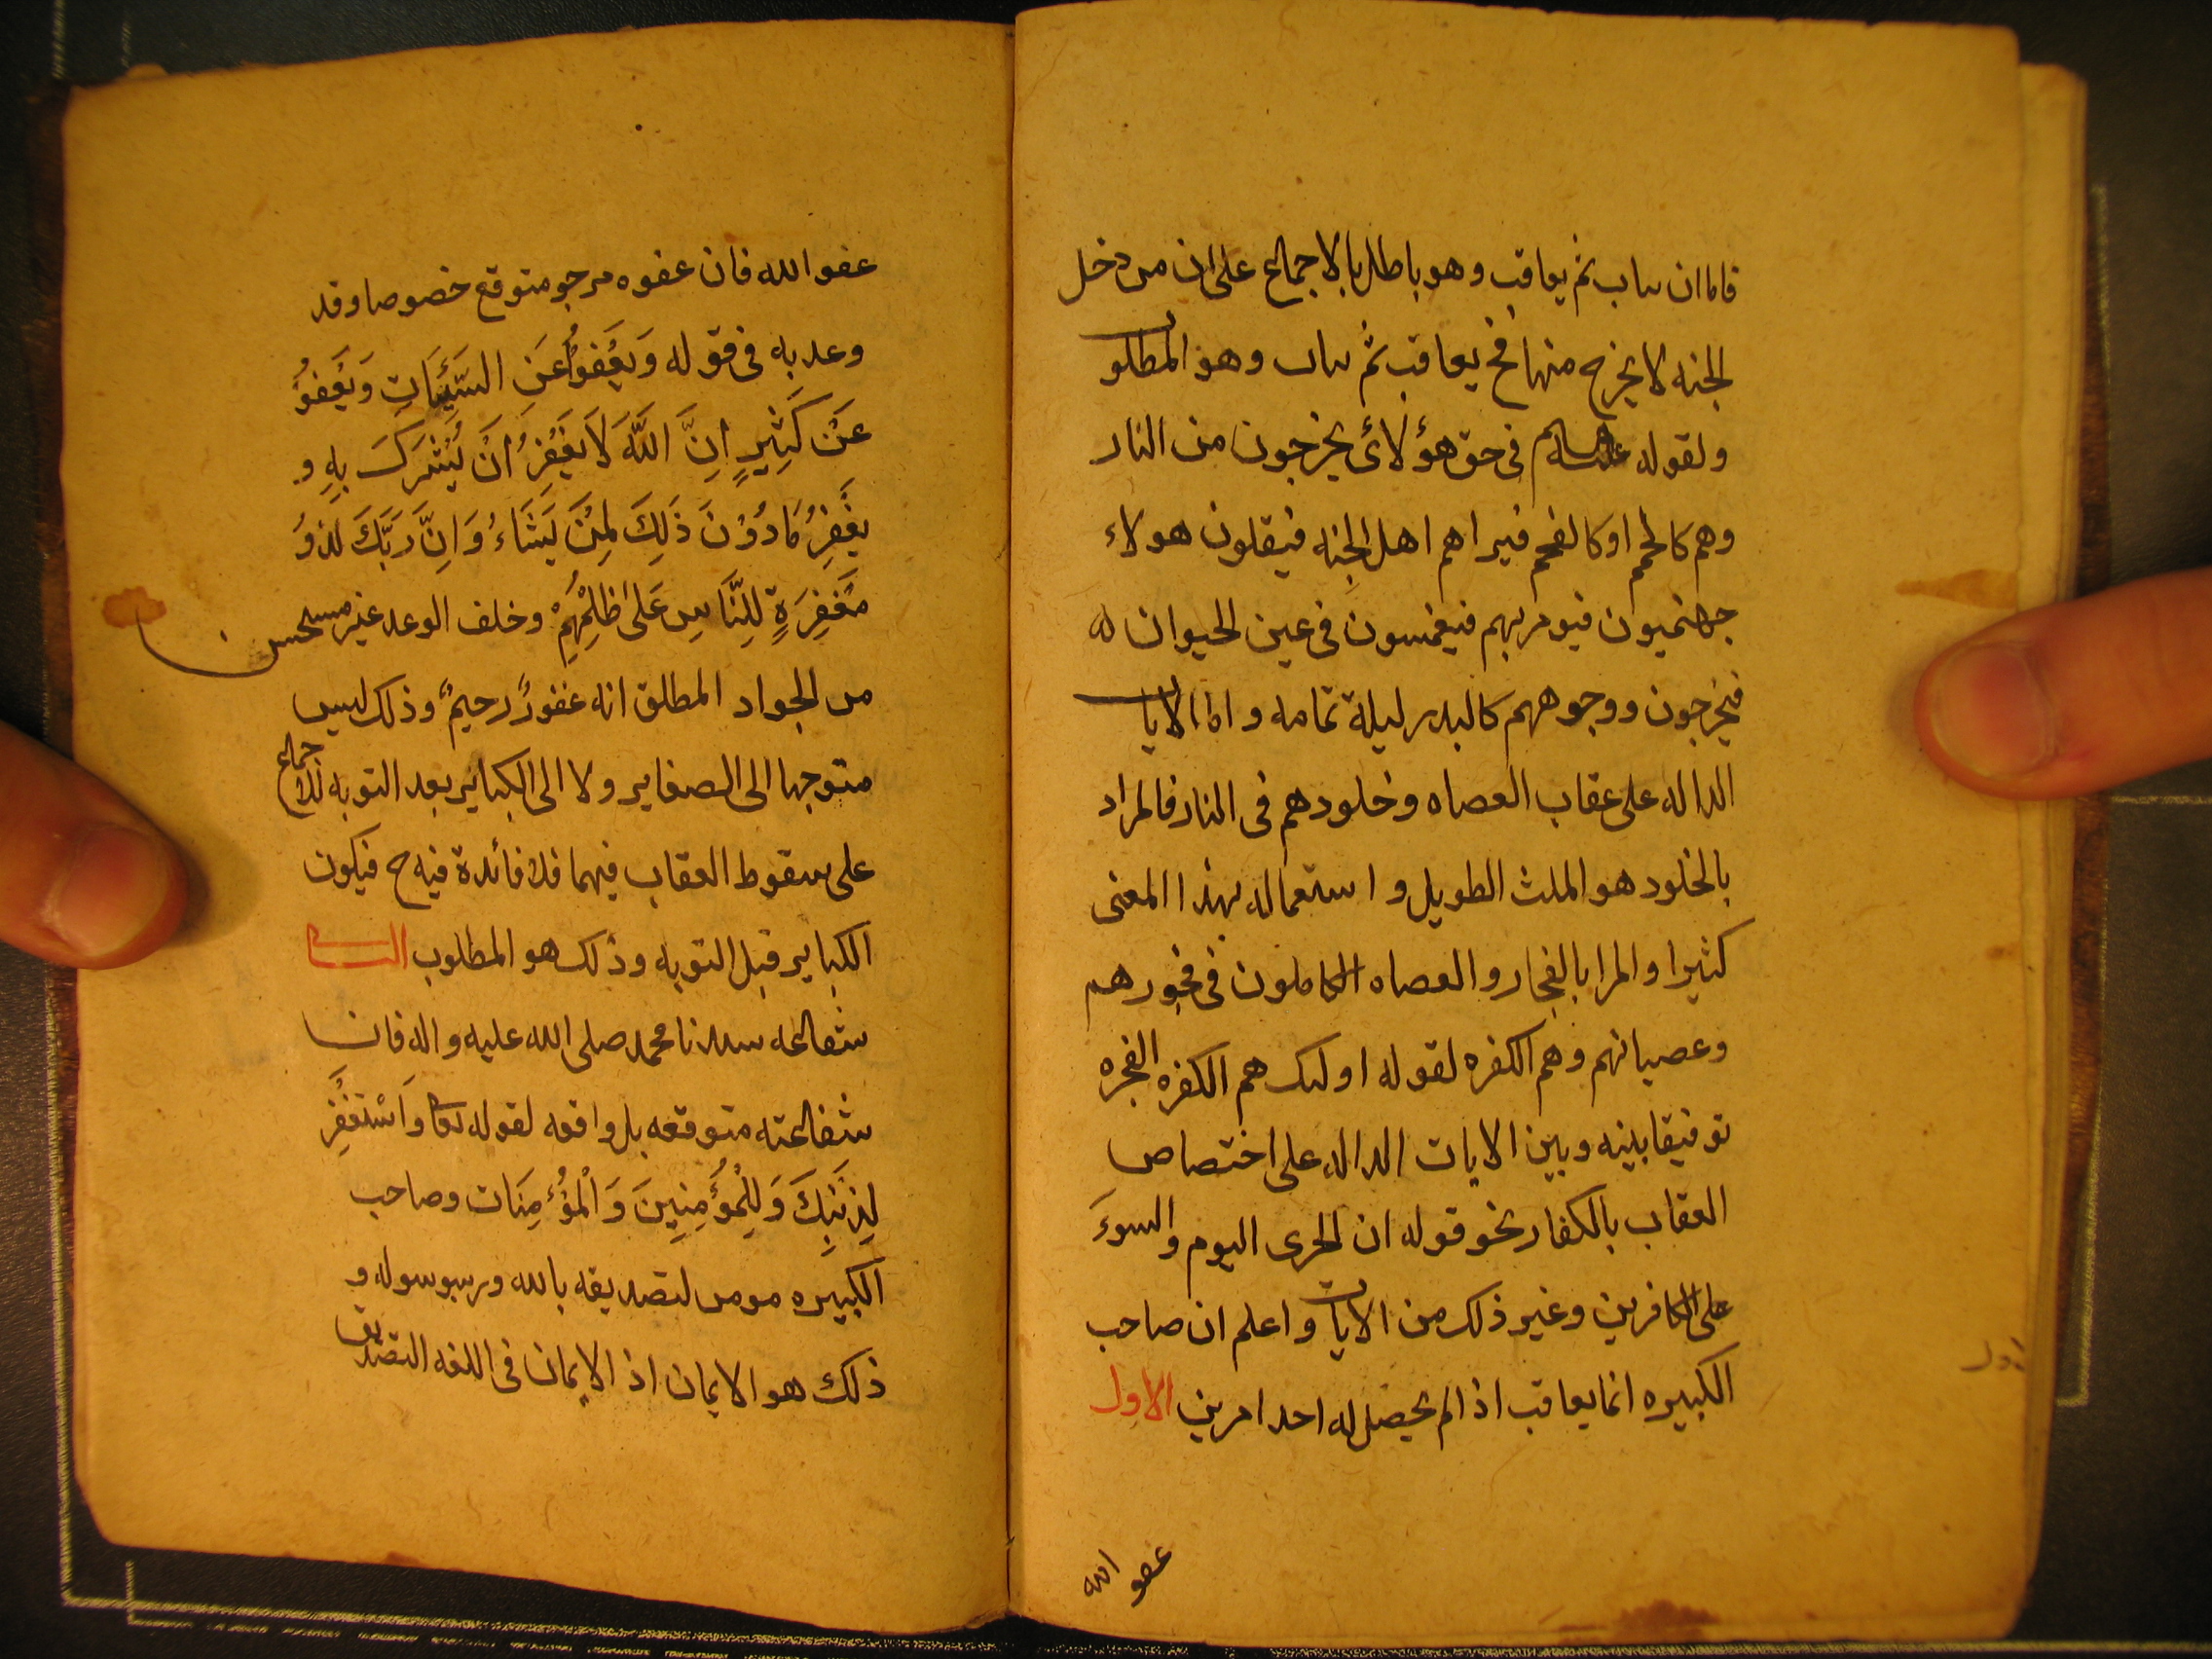 فاما ان ىىاب ثم يعاقب وهو باطل بالاجماع على ان من دخل
الجنه لا يخرج منها فح يعاقب ثم ىىاب وهو المطلوب
ولقوله عليه السلم فى حق هؤلائ يخرجون من النار
وهم كالحمم او كالفحم فيراهم اهل الجنه فيقلون هولاء
جهنميون فيومر بهم فيغمسون فى عين الحيوان
فيخرجون ووجوههم كالبدر ليلة تمامه واما الايات
الداله على عقاب العصاه وخلودهم فى النار فالمراد
بالخلود هو الملث الطويل واستعماله بهذا المعنى
كثيرا والمرا بالفجار والعصاه الكاملون فى فجورهم
وعصيانهم وهم الكفره لقوله اولىك هم الكفره الفجره
توفيقا بينه وبين الايات الداله على اختصاص
العقاب بالكفار نحو قوله ان الخرى اليوم والسوءَ
على الكافرين وغير ذلك من الايات واعلم ان صاحب
الكبيره انما يعاقب اذا لم يحصل له احد امرين الاول
عفو الله
عفو الله فان عفوه مرجو متوقع خصوصا وقد
وعد به فى قوله وَيَعْفُوُا عَنِ السَّيِّئَاتِ وَيَعْفُوُ
عَنْ كَثِيرٍ اِنَّ اللَّهَ لَا يَغْفِرُ اَنْ يُشْرَكَ بِهِ و
يَغْفِرُ مَا دُوْنَ ذَلِكَ لِمَنْ يَشَاءُ وَاِنَّ رَبَّكَ لَذُوَ
مَغْفِرَةٍ لِلنَّاسِ عَلىٰ ظُلْمِهِمْ وخلف الوعد غير مستحسن
من الجواد المطلق انه غفورٌ رحيمٌ وذلك ليس
متوجها الى الصغاير ولا الى الكباير بعد التوبه للاجماع
على سقوط العقاب فيهما فلا فائدة فيه ح فيكون
الكباير قبل التوبه وذلك هو المطلوب
شفاعه سىدنا محمد صلى الله عليه واله فان
شفاعته متوقعه بل واقعه لقوله تعا وَاسْتَغْفِرْ
لِذَنْبِكَ وَلِلْمُؤْمِنِينَ وَالْمُؤْمِنَات وصاحب
الكبيره مومن لتصديقه بالله وبرسوسوله و
ذلك هو الايمان اذ الايمان فى اللغه التصديق